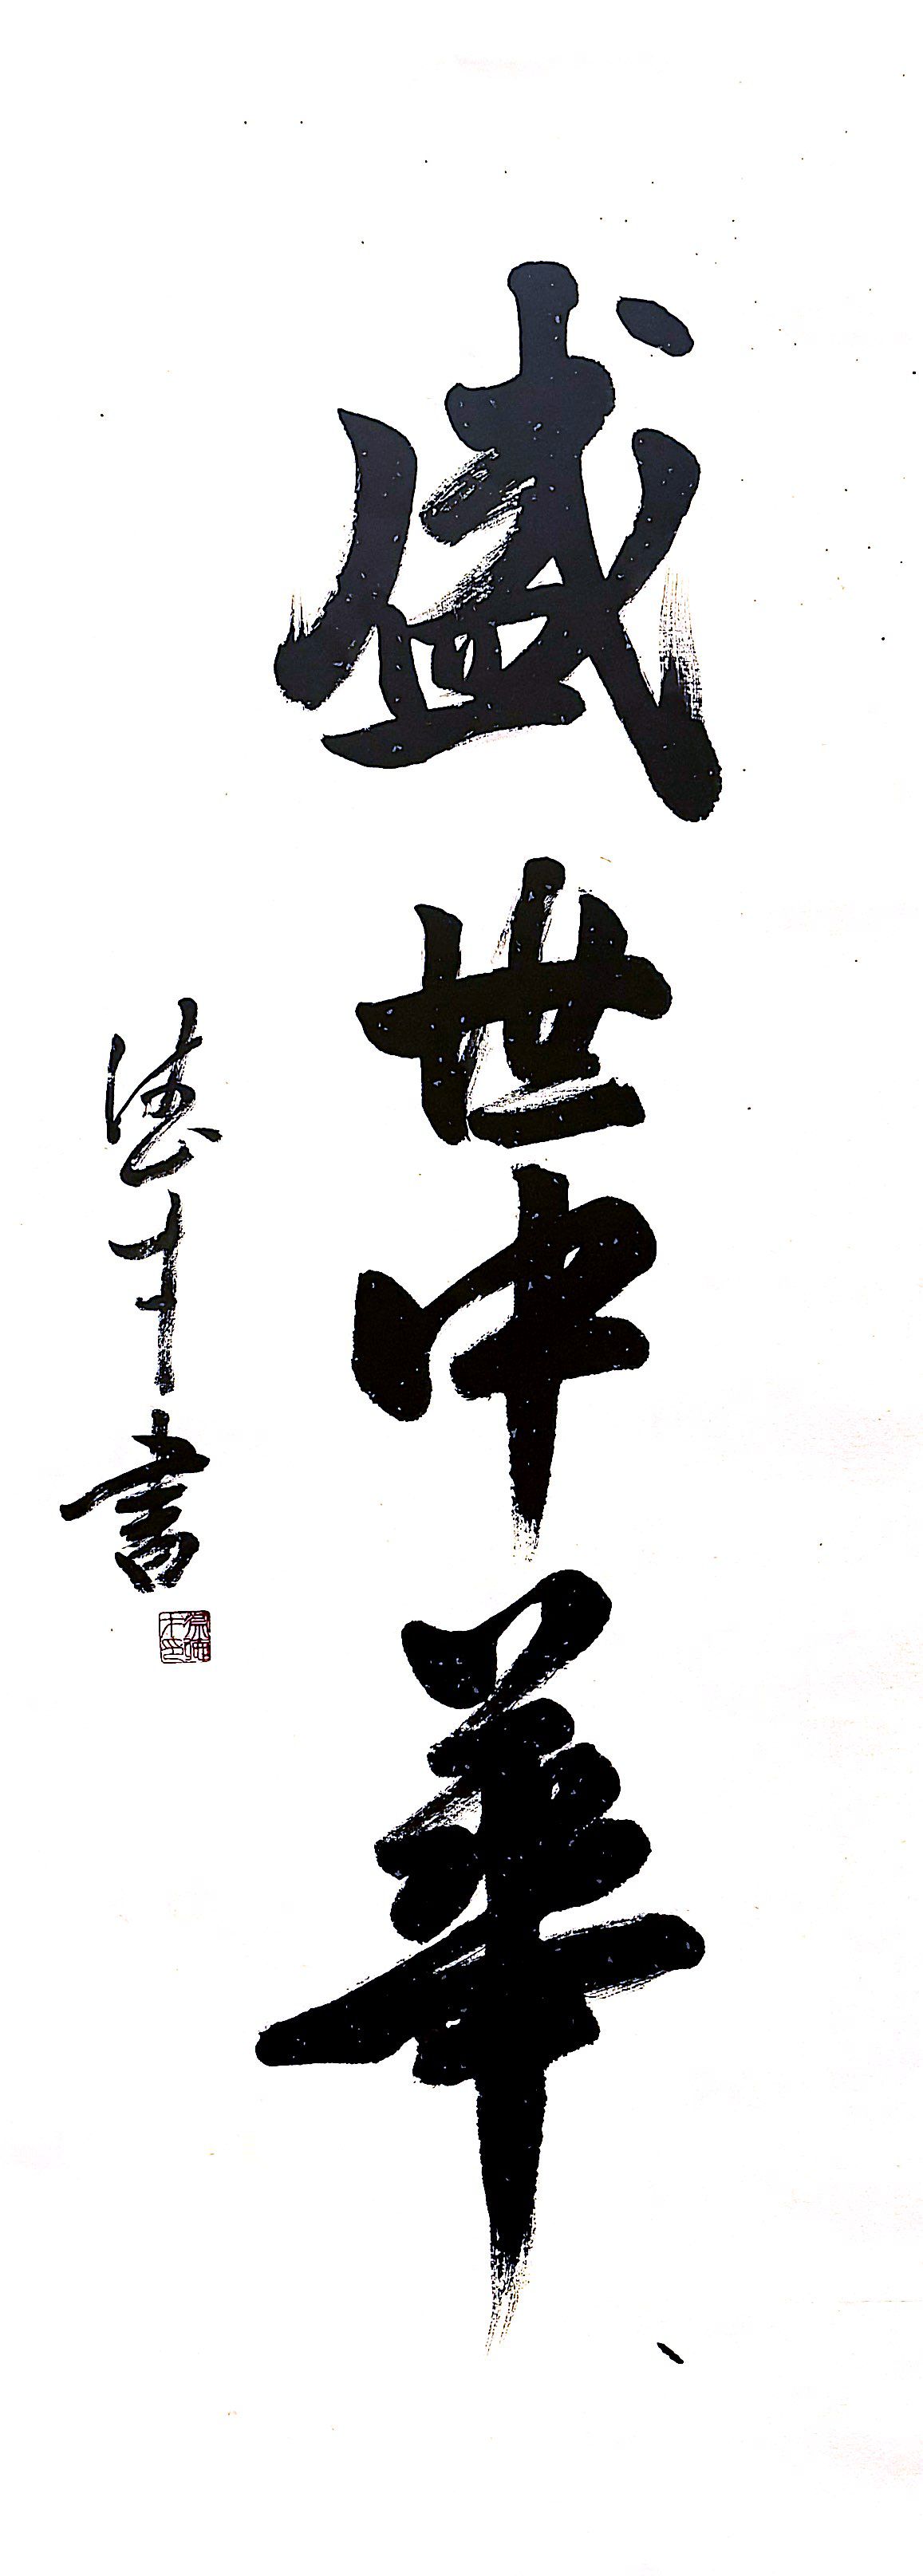 盛世中華
德才書